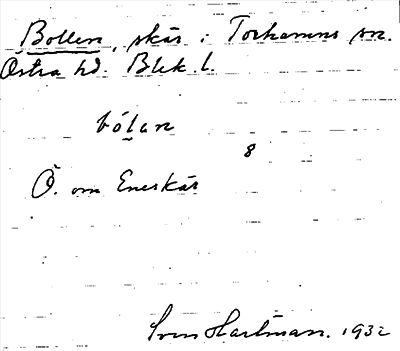 Bollen, skär i Torhamns sn.
Östra hd. Blek. l.
bólan
8
Ö. om Eneskär
Sven Hartman. 1932